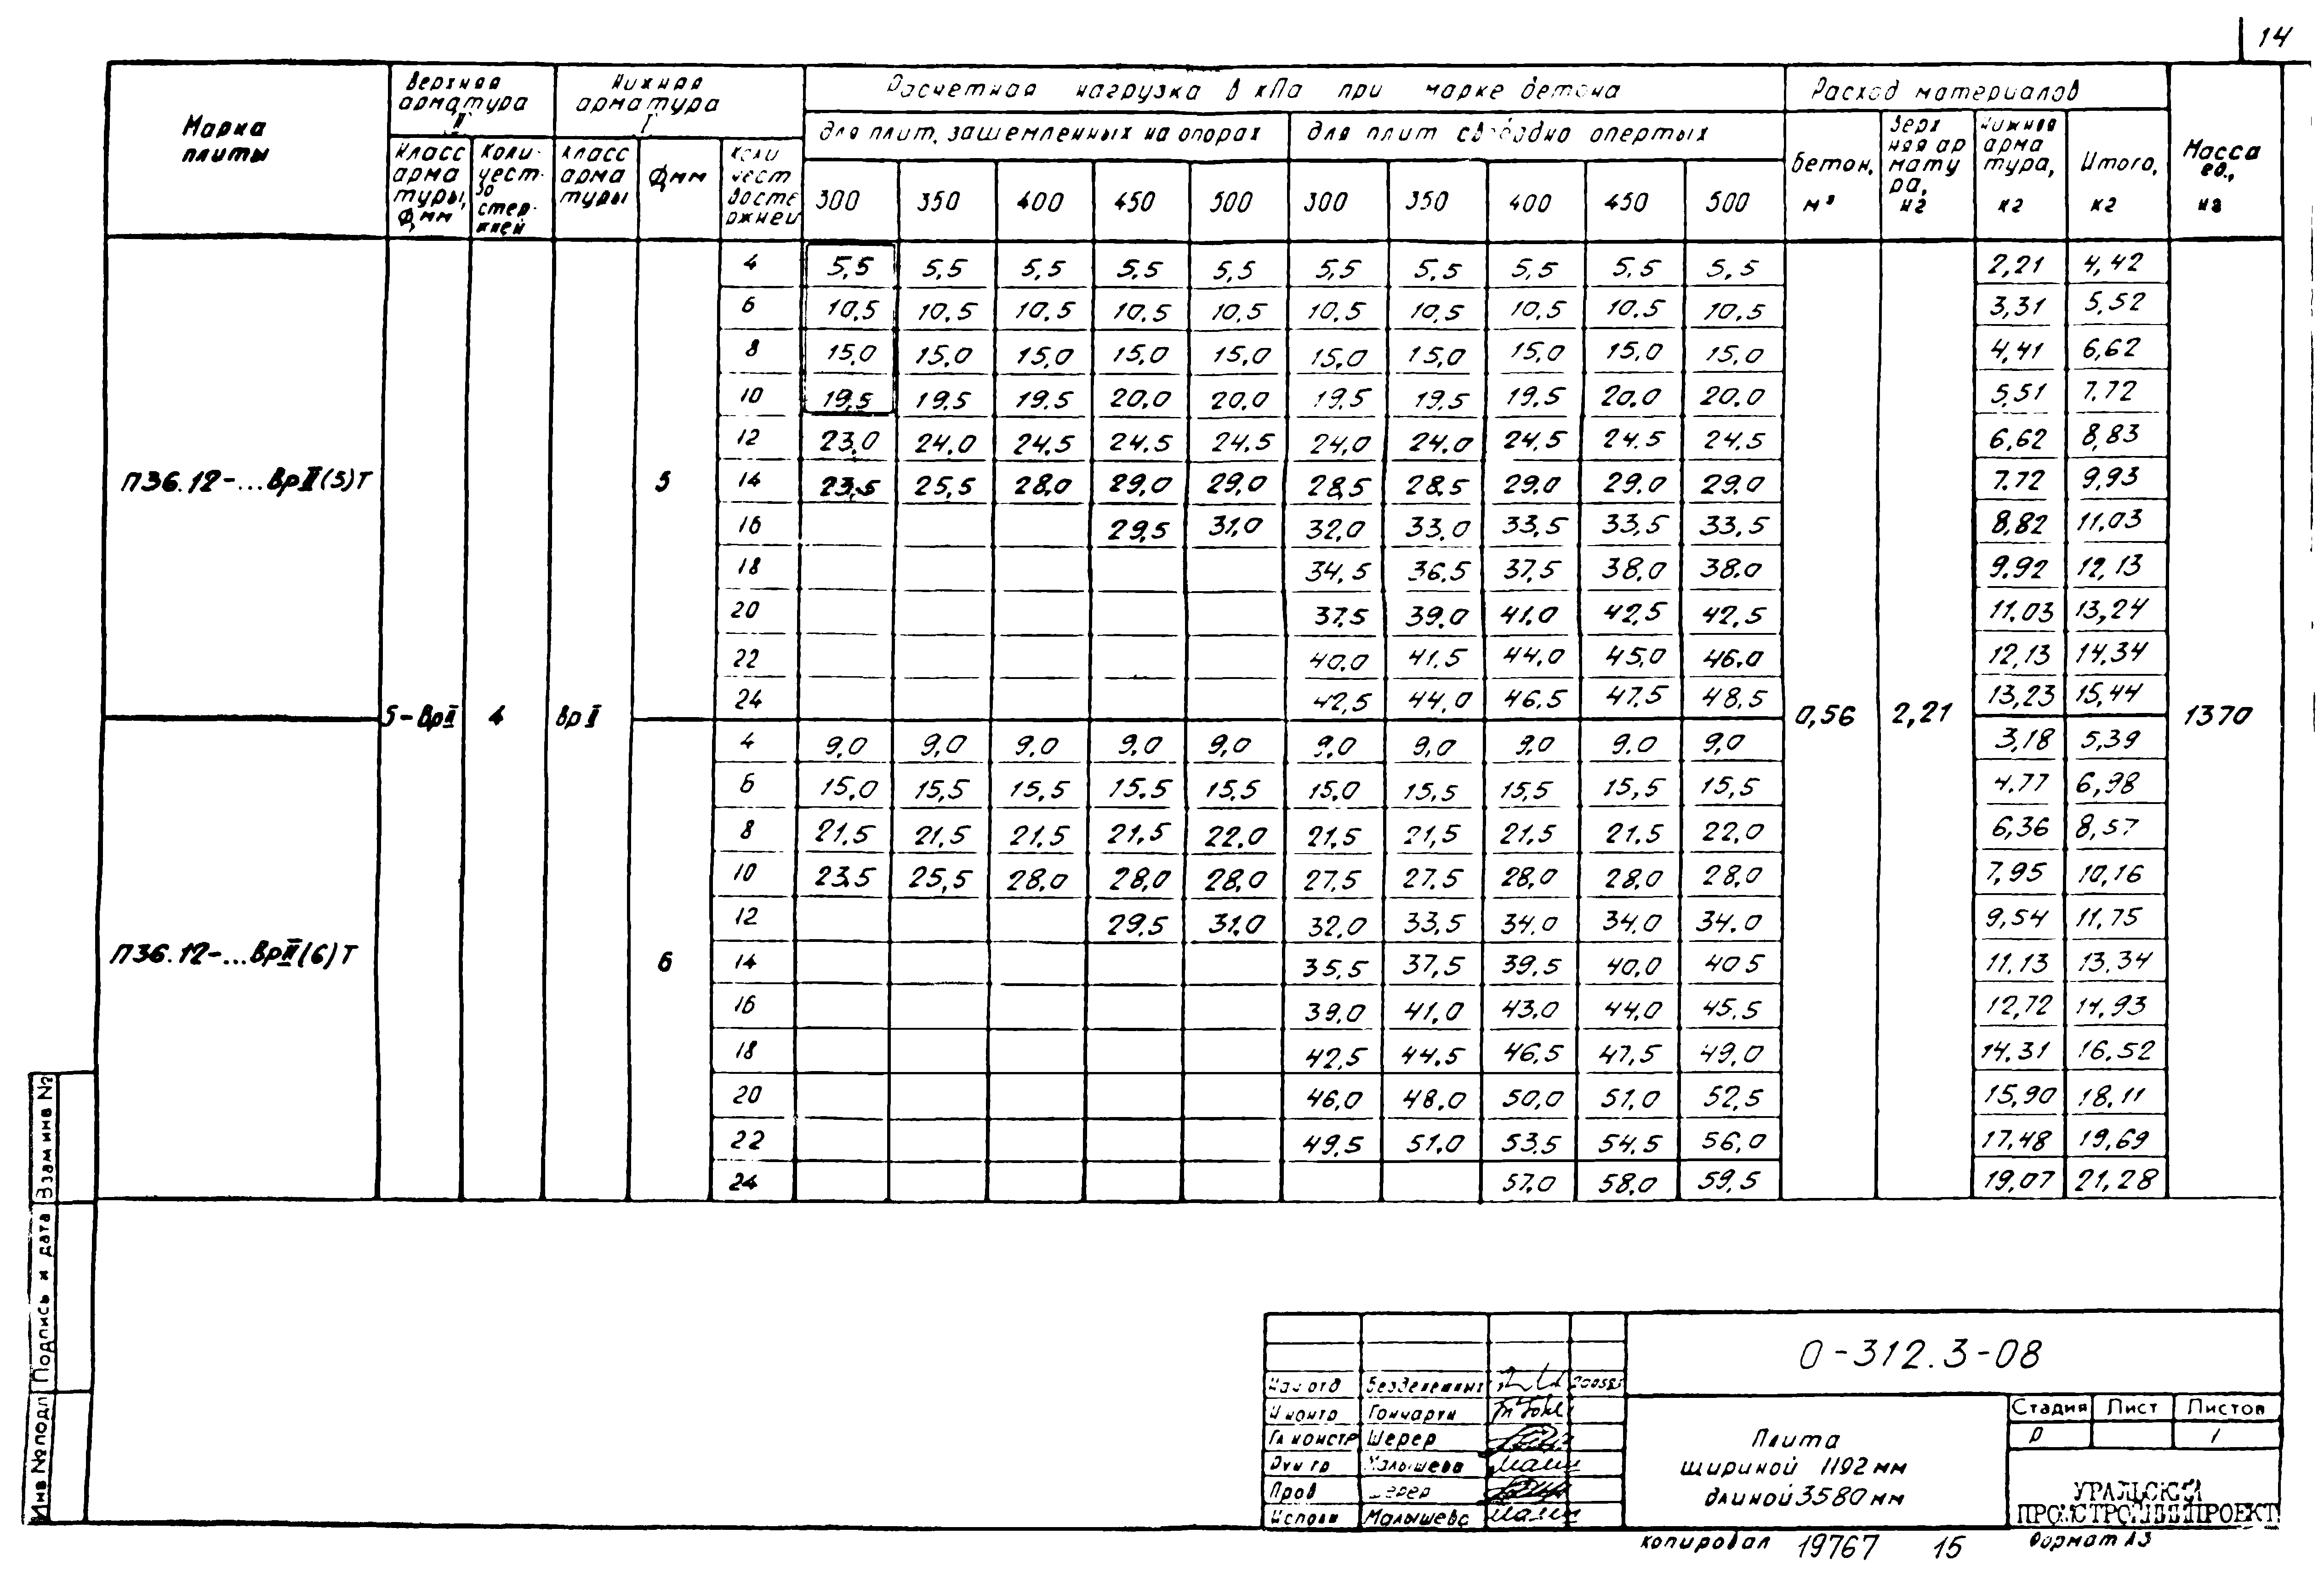 14
Марка плиты
Верхняя арматура II
Нижняя арматура I
Расчетная нагрузка в кПа при марке бетона
Расход материалов
Масса ед., кг
для плит, защемленных на опорах
для плит свободно опертых
Класс арматуры, Ф, мм
Количество стержней
Класс арматуры
Ф, мм
Количество стержней
300 350 400 450 500 300 350 400 450 500
Бетон, м³
Верхняя арматура, кг
Нижняя арматура, кг
Итого, кг
П36.12-...ВрII(5)Т
5-ВрII 4 ВрII 5
4 5,5 5,5 5,5 5,5 5,5 5,5 5,5 5,5 5,5 5,5 2,21 4,42
6 10,5 10,5 10,5 10,5 10,5 10,5 10,5 10,5 10,5 10,5 3,31 5,52
8 15,0 15,0 15,0 15,0 15,0 15,0 15,0 15,0 15,0 15,0 4,41 6,62
10 19,5 19,5 19,5 20,0 20,0 19,5 19,5 19,5 20,0 20,0 5,51 7,72
12 23,0 24,0 24,5 24,5 24,5 24,0 24,0 24,5 24,5 24,5 6,62 8,83
14 23,5 25,5 28,0 29,0 29,0 28,5 28,5 29,0 29,0 29,0 7,72 9,93
16 29,5 31,0 32,0 33,0 33,5 33,5 33,5 8,82 11,03
18 34,5 36,5 37,5 38,0 38,0 9,92 12,13
20 37,5 39,0 41,0 42,5 42,5 11,03 13,24
22 40,0 41,5 44,0 45,0 46,0 12,13 14,34
24 42,5 44,0 46,5 47,5 48,5 13,23 15,44
0,56 2,21 1370
П36.12-...ВрII(6)Т
6
4 9,0 9,0 9,0 9,0 9,0 9,0 9,0 9,0 9,0 9,0 3,18 5,39
6 15,0 15,5 15,5 15,5 15,5 15,0 15,5 15,5 15,5 15,5 4,77 6,98
8 21,5 21,5 21,5 21,5 22,0 21,5 21,5 21,5 21,5 22,0 6,36 8,57
10 23,5 25,5 28,0 28,0 28,0 27,5 27,5 28,0 28,0 28,0 7,95 10,16
12 29,5 31,0 32,0 33,5 34,0 34,0 34,0 9,54 11,75
14 35,5 37,5 39,5 40,0 40 5 11,13 13,34
16 39,0 41,0 43,0 44,0 45,5 12,72 14,93
18 42,5 44,5 46,5 47,5 49,0 14,31 16,52
20 46,0 48,0 50,0 51,0 52,5 15,90 18,11
22 49,5 51,0 53,5 54,5 56,0 17,48 19,69
24 57,0 58,0 59,5 19,07 21,28
Взам инв №
Подпись и дата
Инв № подл
0-312.3-08
Нач отд Безденежных
Н контр Гончарти
Гл констр Шерер
Рук гр Малышева
Пров Шерер
Исполн Малышева
Плита
шириной 1192 мм
длиной 3580 мм
Стадия Лист Листов
Р 1
УРАЛЬСКИЙ
ПРОМСТРОЙНИИПРОЕКТ
Копировал 19767 15 Формат А3